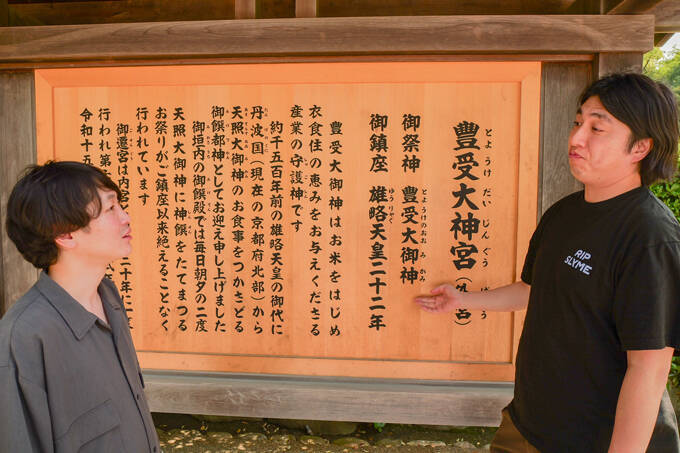 豊受大神宮（外宮）
とようけだいじんぐう
御祭神　豊受大御神
とようけのおおみかみ
御鎮座　雄略天皇二十二年
豊受大御神はお米をはじめ
衣食住の恵みをお与えくださる
産業の守護神です
約千五百年前の雄略天皇の御代に
丹波国（現在の京都府北部）から
天照大御神のお食事をつかさどる
御饌都神としてお迎え申し上げました
御垣内の御饌殿では毎日朝夕の二度
天照大御神に神饌をたてまつる
お祭りがご鎮座以来絶えることなく
行われています
御遷宮は内宮
十年に一度
行われ第
令和十五
RIP
SLYME